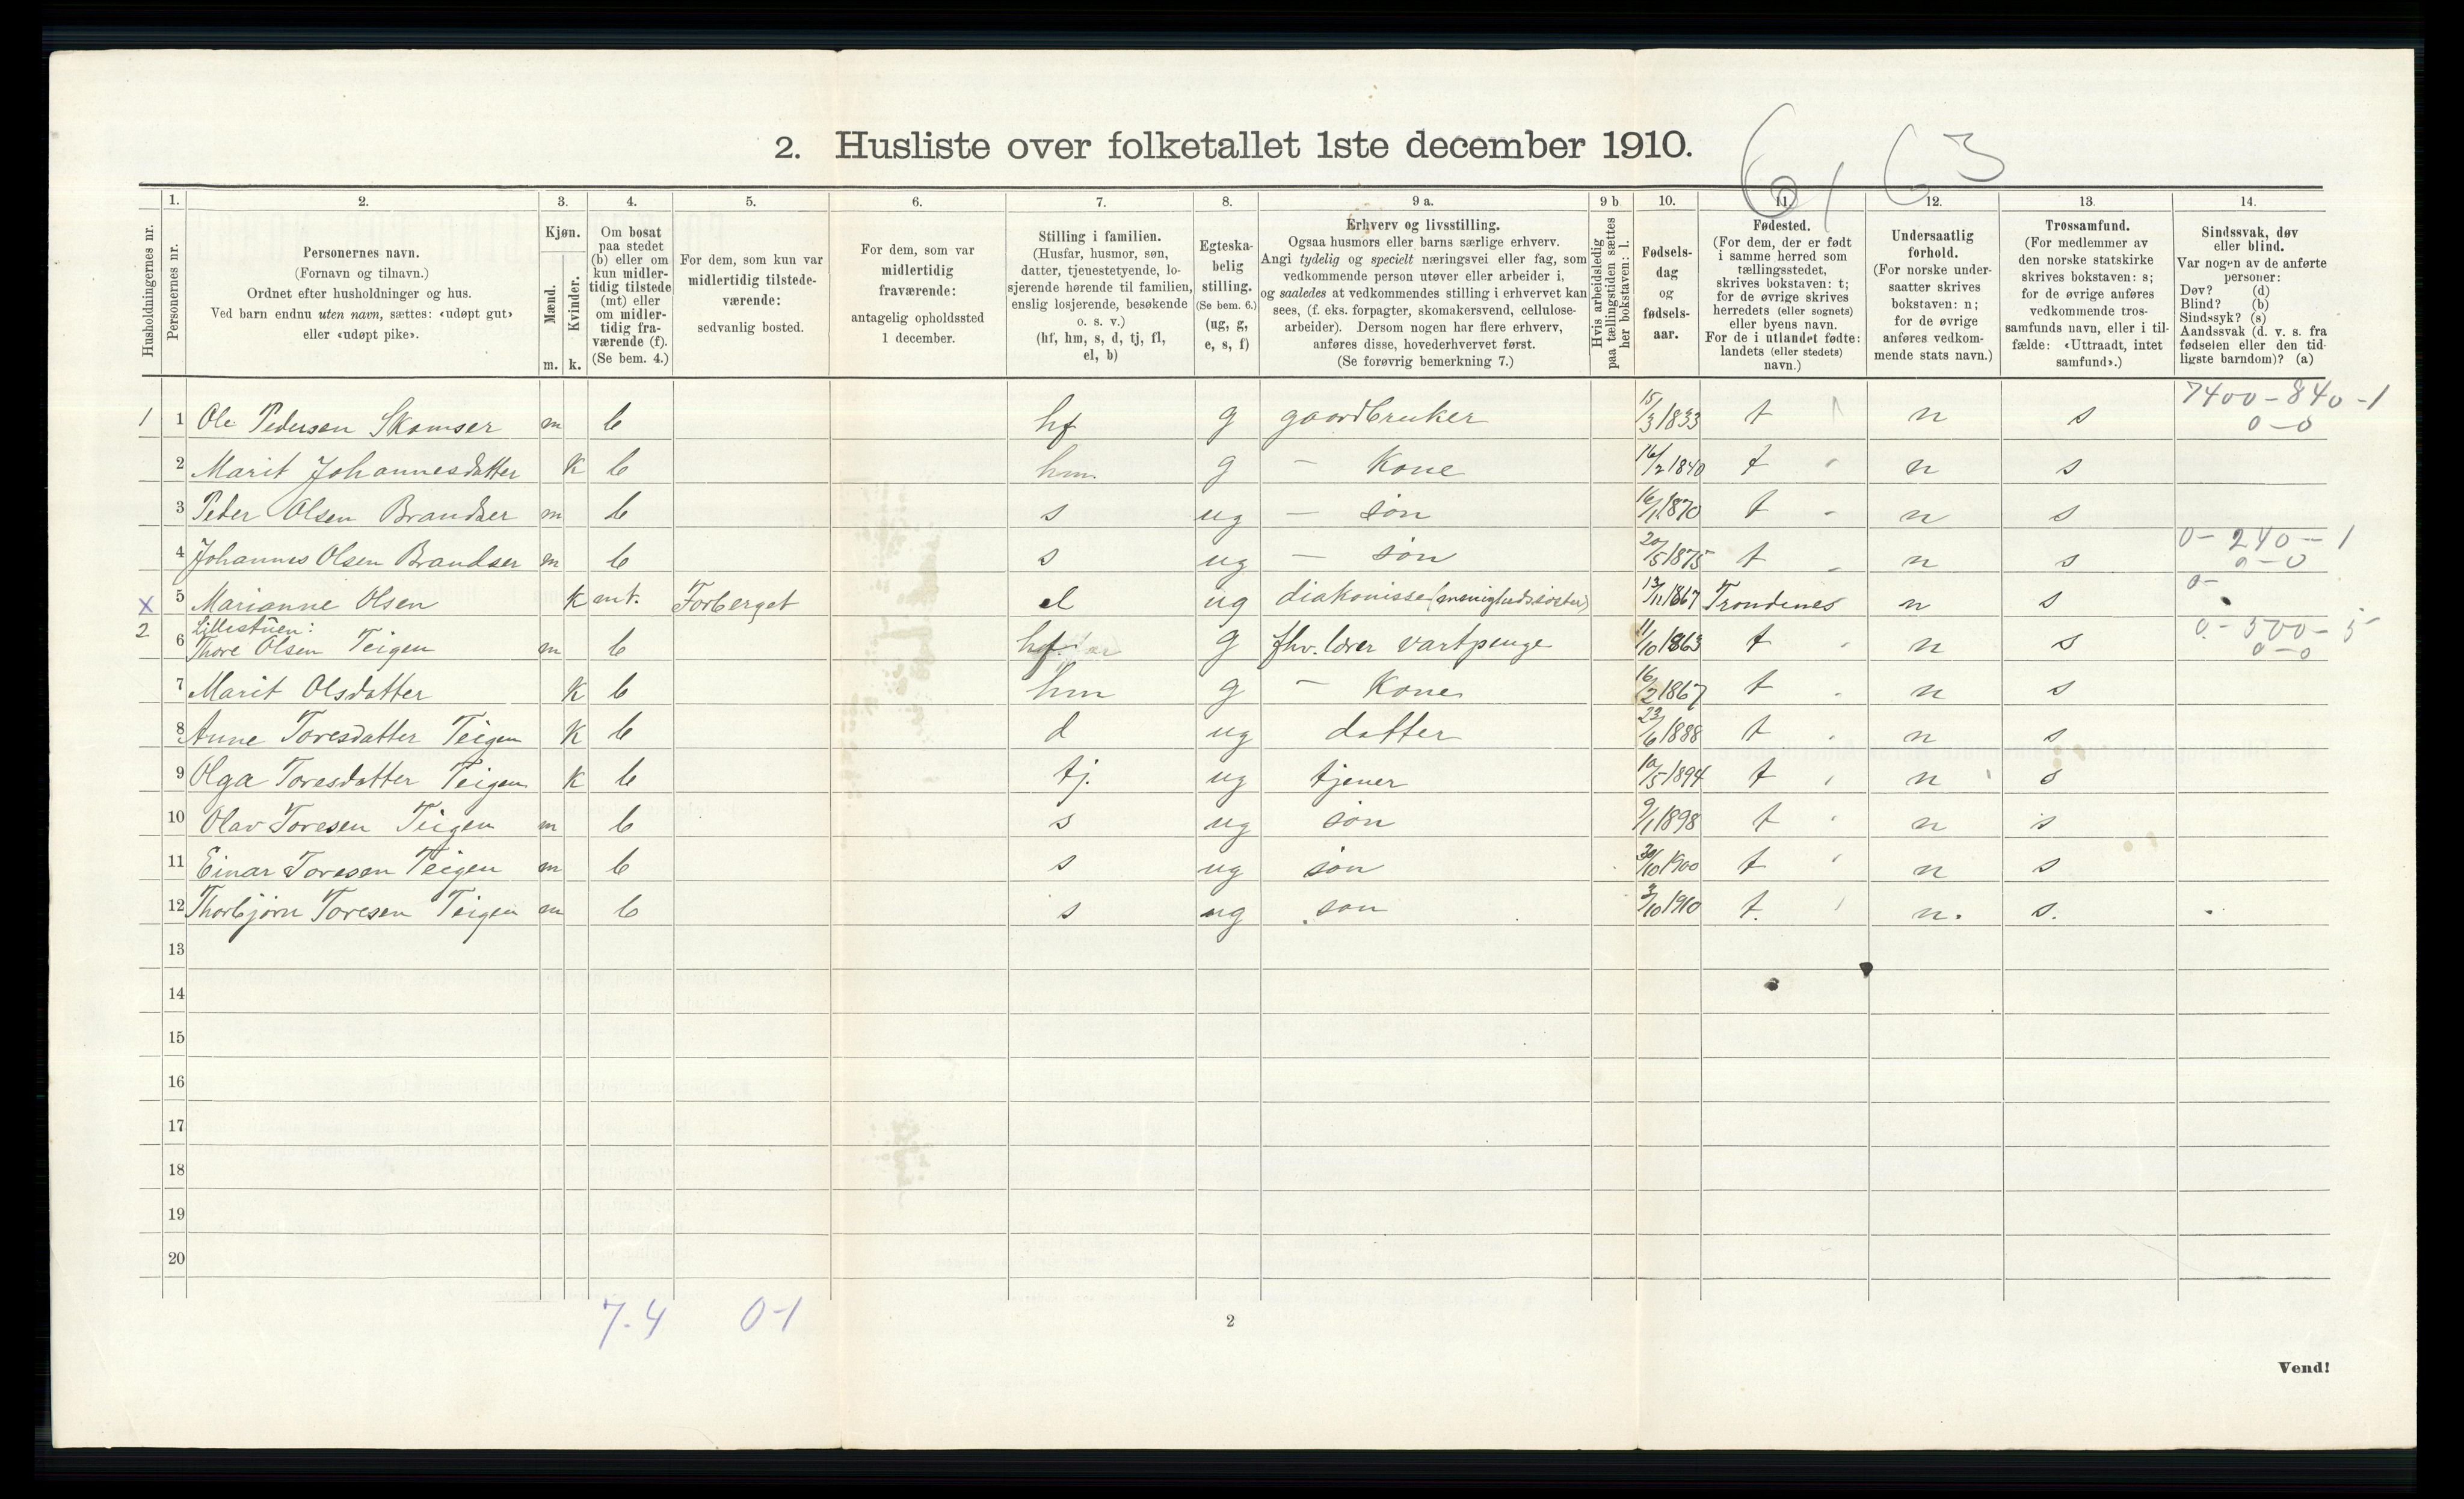 2. Husliste over folketallet 1ste december 1910.
6 1 63
Husholdningernes nr.
1.
Personernes nr.
2.
Personernes navn.
(Fornavn og tilnavn.)
Ordnet efter husholdninger og hus.
Ved barn endnu uten navn, sættes: «udøpt gut»
eller «udøpt pike».
3.
Kjøn.
Mænd.
Kvinder.
m. k.
4.
Om bosat
paa stedet
(b) eller om
kun midler-
tidig tilstede
(mt) eller
om midler-
tidig fra-
værende (f).
(Se bem. 4.)
5.
For dem, som kun var
midlertidig tilstede-
værende:
sedvanlig bosted.
6.
For dem, som var
midlertidig
fraværende:
antagelig opholdssted
1 december.
7.
Stilling i familien.
(Husfar, husmor, søn,
datter, tjenestetyende, lo-
sjerende hørende til familien,
enslig losjerende, besøkende
o. s. v.)
(hf, hm, s, d, tj, fl,
el, b)
8.
Egteska-
belig
stilling.
(Se bem. 6.)
(ug, g,
e, s, f)
9 a.
Erhverv og livsstilling.
Ogsaa husmors eller barns særlige erhverv.
Angi tydelig og specielt næringsvei eller fag, som
vedkommende person utøver eller arbeider i,
og saaledes at vedkommendes stilling i erhvervet kan
sees, (f. eks. forpagter, skomakersvend, cellulose-
arbeider). Dersom nogen har flere erhverv,
anføres disse, hovederhvervet først.
(Se forøvrig bemerkning 7.)
9 b
Hvis arbeidsledig
paa tællingstiden sættes
her bokstaven: l.
10.
Fødsels-
dag
og
fødsels-
aar.
11.
Fødested.
(For dem, der er født
i samme herred som
tællingsstedet,
skrives bokstaven: t;
for de øvrige skrives
herredets (eller sognets)
eller byens navn.
For de i utlandet fødte:
landets (eller stedets)
navn.)
12.
Undersaatlig
forhold.
(For norske under-
saatter skrives
bokstaven: n;
for de øvrige
anføres vedkom-
mende stats navn.)
13.
Trossamfund.
(For medlemmer av
den norske statskirke
skrives bokstaven: s;
for de øvrige anføres
vedkommende tros-
samfunds navn, eller i til-
fælde: «Uttraadt, intet
samfund».)
14.
Sindssvak, døv
eller blind.
Var nogen av de anførte
personer:
Døv? (d)
Blind? (b)
Sindssyk? (s)
Aandssvak (d. v. s. fra
fødselen eller den tid-
ligste barndom)? (a)
1 1 Ole Pedersen Skamser m b hf g gaardbruker 15/3 1833 t n s 7400-840-1 0-0
2 Marit Johannesdatter K b hm. g - Kone 16/2 1840 t n s
3 Peder Olsen Brandser m b s ug - søn 16/1 1870 t n s
4 Johannes Olsen Brandser m b s ug - søn 20/5 1875 t n s 0-240-1 0-0
x 5 Marianne Olsen K mt. Forberget el ug diakonisse (menighedssøster) 13/11 1867 Trondenes n s 0-
2 Lillestuen:
6 Thore Olsen Teigen m b hf g fhv. lærer vartpenge 11/10 1863 t n s 0-500-5 0-0
7 Marit Olsdatter K b hm g - Kone 16/2 1867 t n s
8 Anne Toresdatter Teigen K b d ug datter 23/6 1888 t n s
9 Olga Toresdatter Teigen K b tj. ug tjener 10/5 1894 t n s
10 Olav Toresen Teigen m b s ug søn 9/1 1898 t n s
11 Einar Toresen Teigen m b s ug søn 30/10 1900 t n s
12 Thorbjørn Toresen Teigen m b s ug søn 3/10 1910 t. n. s.
13
14
15
16
17
18
19
20
7.4 0-1
2
Vend!